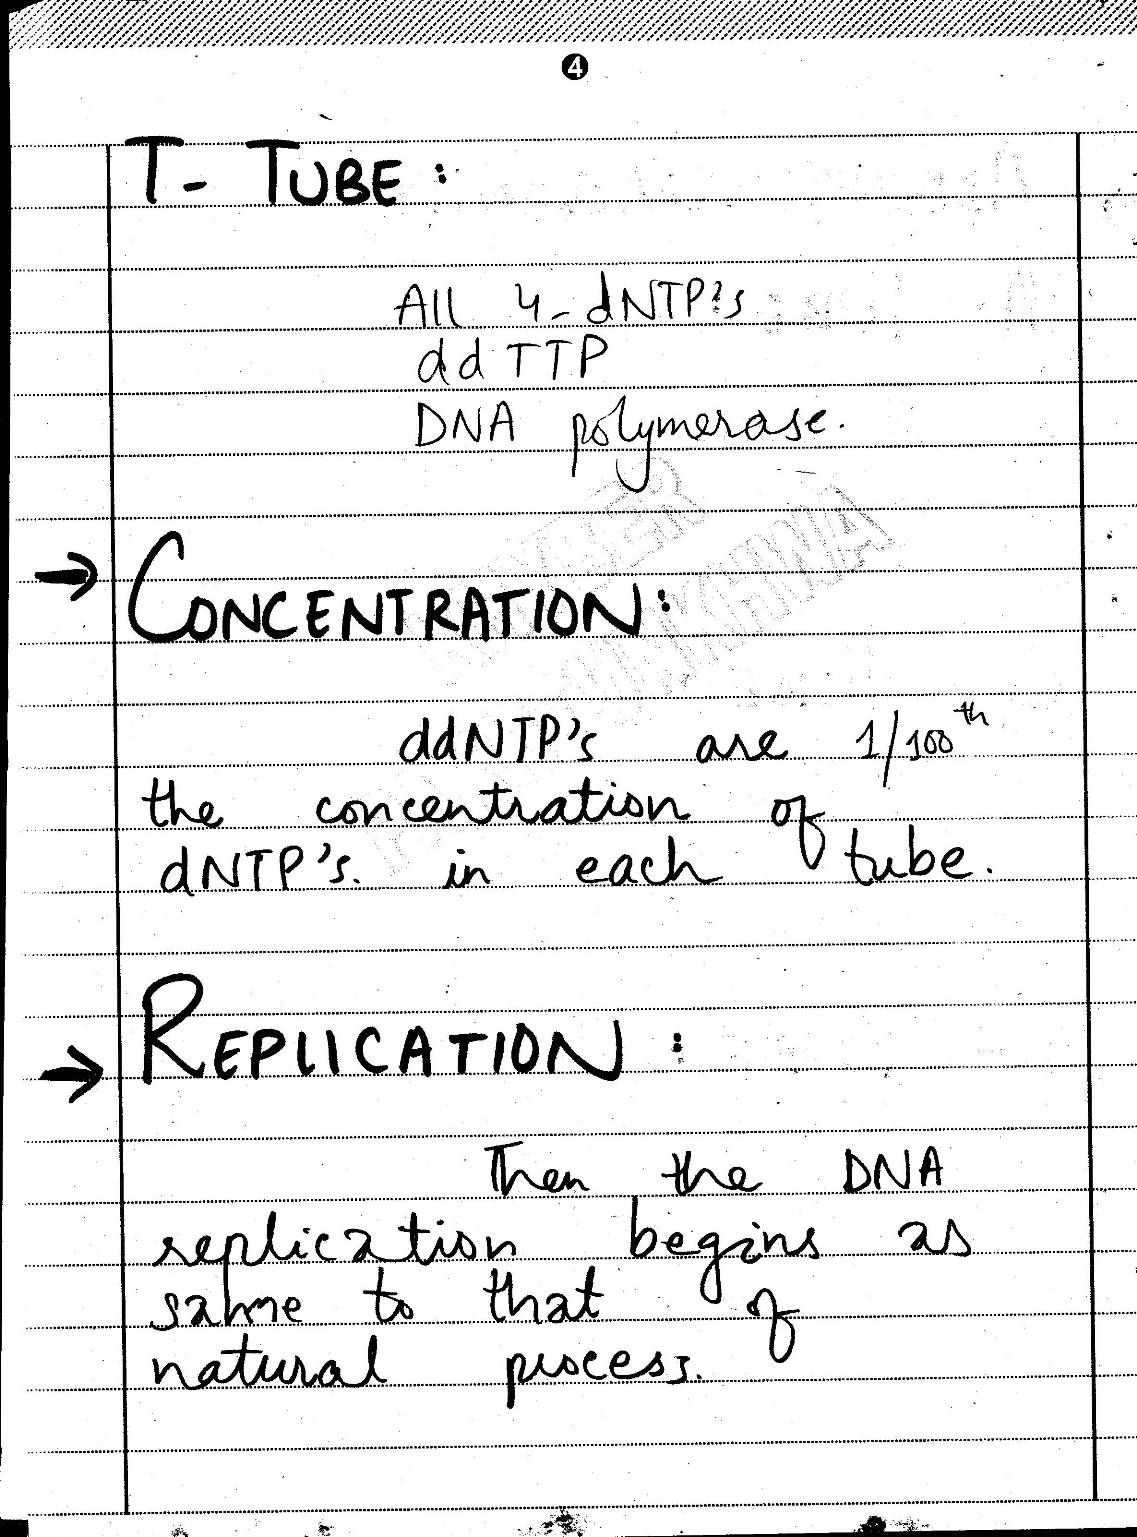 4
T- TUBE :
All 4-dNTP's
ddTTP
DNA polymerase.
→ CONCENTRATION:
ddNTP's are 1/100th
the concentration of
dNTP's. in each tube.
→ REPLICATION :
Then the DNA
replication begins as
same to that of
natural process.